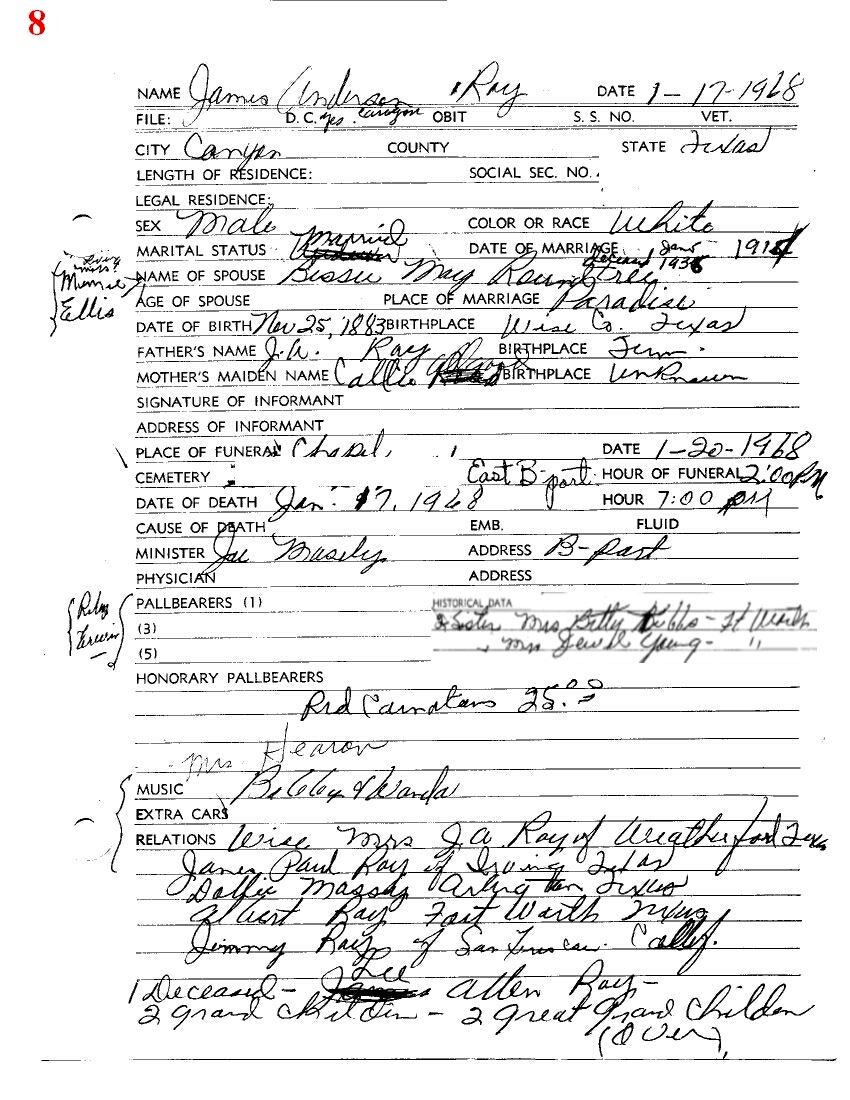 8
NAME James Anderson Ray DATE 1-17-1968
FILE: D.C. yes. OBIT S. S. NO. VET.
CITY Canyon COUNTY STATE Texas
LENGTH OF RESIDENCE: SOCIAL SEC. NO.
LEGAL RESIDENCE:
SEX Male COLOR OR RACE White
MARITAL STATUS Married DATE OF MARRIAGE Jan 191
deceased 193
NAME OF SPOUSE Bessie May Roundtree
Ellis
AGE OF SPOUSE PLACE OF MARRIAGE Paradise
DATE OF BIRTH Nov 25, 1883 BIRTHPLACE Wise Co. Texas
FATHER'S NAME J.A. Ray BIRTHPLACE Tenn.
MOTHER'S MAIDEN NAME Callie BIRTHPLACE Unknown
SIGNATURE OF INFORMANT
ADDRESS OF INFORMANT
PLACE OF FUNERAL Chapel, DATE 1-20-1968
CEMETERY East B-port. HOUR OF FUNERAL 2:00 PM
DATE OF DEATH Jan. 17, 1968 HOUR 7:00 PM
CAUSE OF DEATH EMB. FLUID
MINISTER Joe ADDRESS B-port
PHYSICIAN ADDRESS
PALLBEARERS (1) HISTORICAL DATA
Sister Mrs Betty Gibbs - Ft Worth
(3)
Mrs Jewel Young - "
(5)
HONORARY PALLBEARERS
Red Carnations 25.00
Mrs Hearon
MUSIC & Wanda
EXTRA CARS
RELATIONS Wise Mrs J A Ray of Weatherford Texas
James Paul Ray of Irving Texas
Dollie Massey Arlington Texas
Albert Ray Fort Worth Texas
Jimmy Ray of Calif.
1 Deceased - Lee Allen Ray -
2 grand children - 2 Great grand children
(Over)